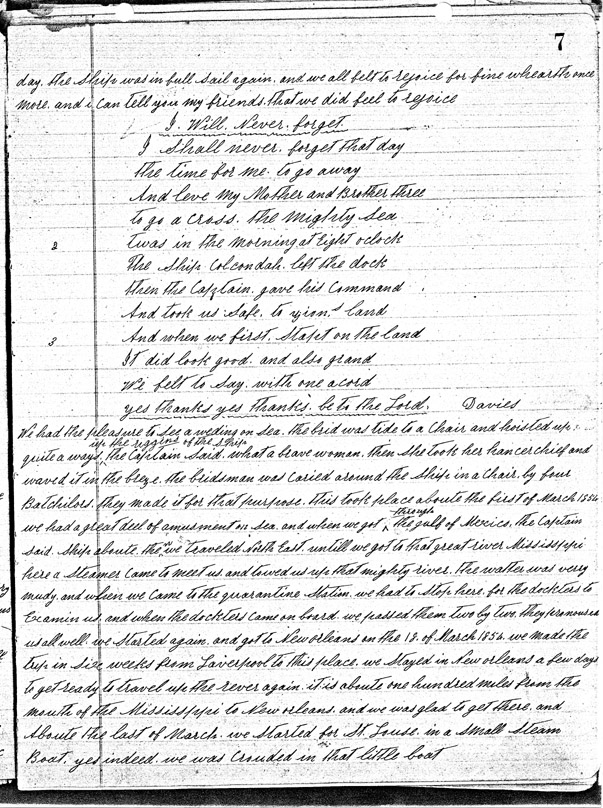 7
day, the Ship was in full sail again. and we all felt to rejoice for fine whearth once
more. and i can tell you my friends. that we did feel to rejoice
I. Will. Never. forget.
I Shall never. forget that day
the time for me. to go away
And leve my Mother and Brother three
to go a cross. the mighty sea
2 twas in the morning at Eight oclock
The Ship Colcondah. left the dock
then the Captain. gave his Command
And took us Safe. to zion.s land
3 And when we first. Stapt on the land
It did look good. and also grand
We felt to Say. with one acord
yes thanks yes thanks. be to the Lord. Davies
We had the pleasure to see a weding on sea. the brid was tide to a Chair and hoisted up.
up the riggins of the ship
quite a ways. the Captain Said. what a brave woman. then she took her hancerchief and
waved it in the breze. the bridsman was caried around the Ship in a Chair. by four
Batchilors. they made it for that purpose. this took place aboute the first of March 1854
through
we had a great deel of amusment on Sea. and when we got the gulf of Mexico. the Captain
said. Ship aboute. the we traveled North East. untill we got to that great river Mississppi
here a Steamer Came to meet us. and towed us up that mighty river. the watter was verry
mudy. and when we came to the quarantine Station. we had to Stop here. for the dockters to
Examin us. and when the dockters came on board. we passed them two by two. they pronounced
us all well. we Started again. and got to New orleans on the 18. of March 1854. we made the
trip in Six weeks from Laverpool to this place. we Stayed in New orleans a few days
to get ready to travel up the rever again. it is aboute one hundred miles from the
mouth of the Mississppi to New orleans. and we was glad to get there. and
Aboute the last of March. we Started for St. Louse. in a Small Steam
Boat. yes indeed. we was Crouded in that little boat